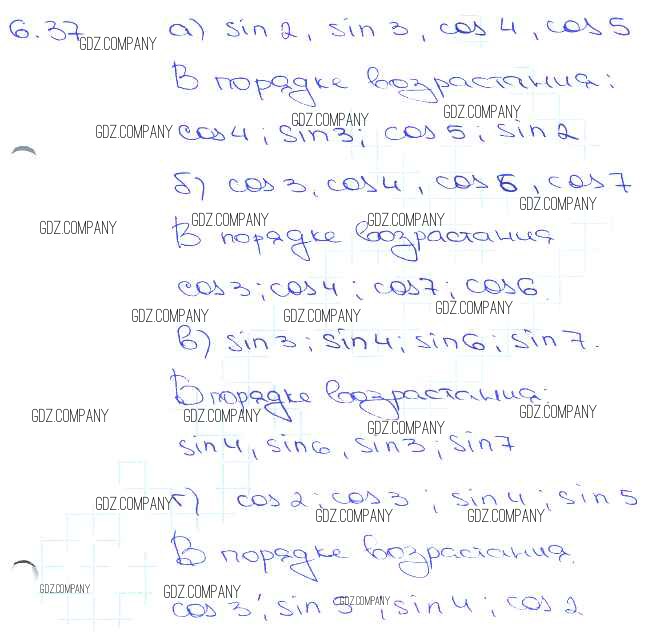 6.37 GDZ.COMPANY а) sin 2, sin 3, cos 4, cos 5
В порядке возрастания:
GDZ.COMPANY GDZ.COMPANY
GDZ.COMPANY cos 4; sin 3; cos 5; sin 2
б) cos 3, cos 4, cos 6, cos 7
GDZ.COMPANY
GDZ.COMPANY GDZ.COMPANY GDZ.COMPANY
В порядке возрастания
cos 3; cos 4; cos 7; cos 6
GDZ.COMPANY GDZ.COMPANY GDZ.COMPANY
в) sin 3; sin 4; sin 6; sin 7.
В порядке возрастания:
GDZ.COMPANY GDZ.COMPANY GDZ.COMPANY GDZ.COMPANY
sin 4, sin 6, sin 3; sin 7
GDZ.COMPANY г) cos 2; cos 3; sin 4; sin 5
GDZ.COMPANY GDZ.COMPANY
В порядке возрастания.
GDZ.COMPANY GDZ.COMPANY GDZ.COMPANY
cos 3; sin 5; sin 4; cos 2